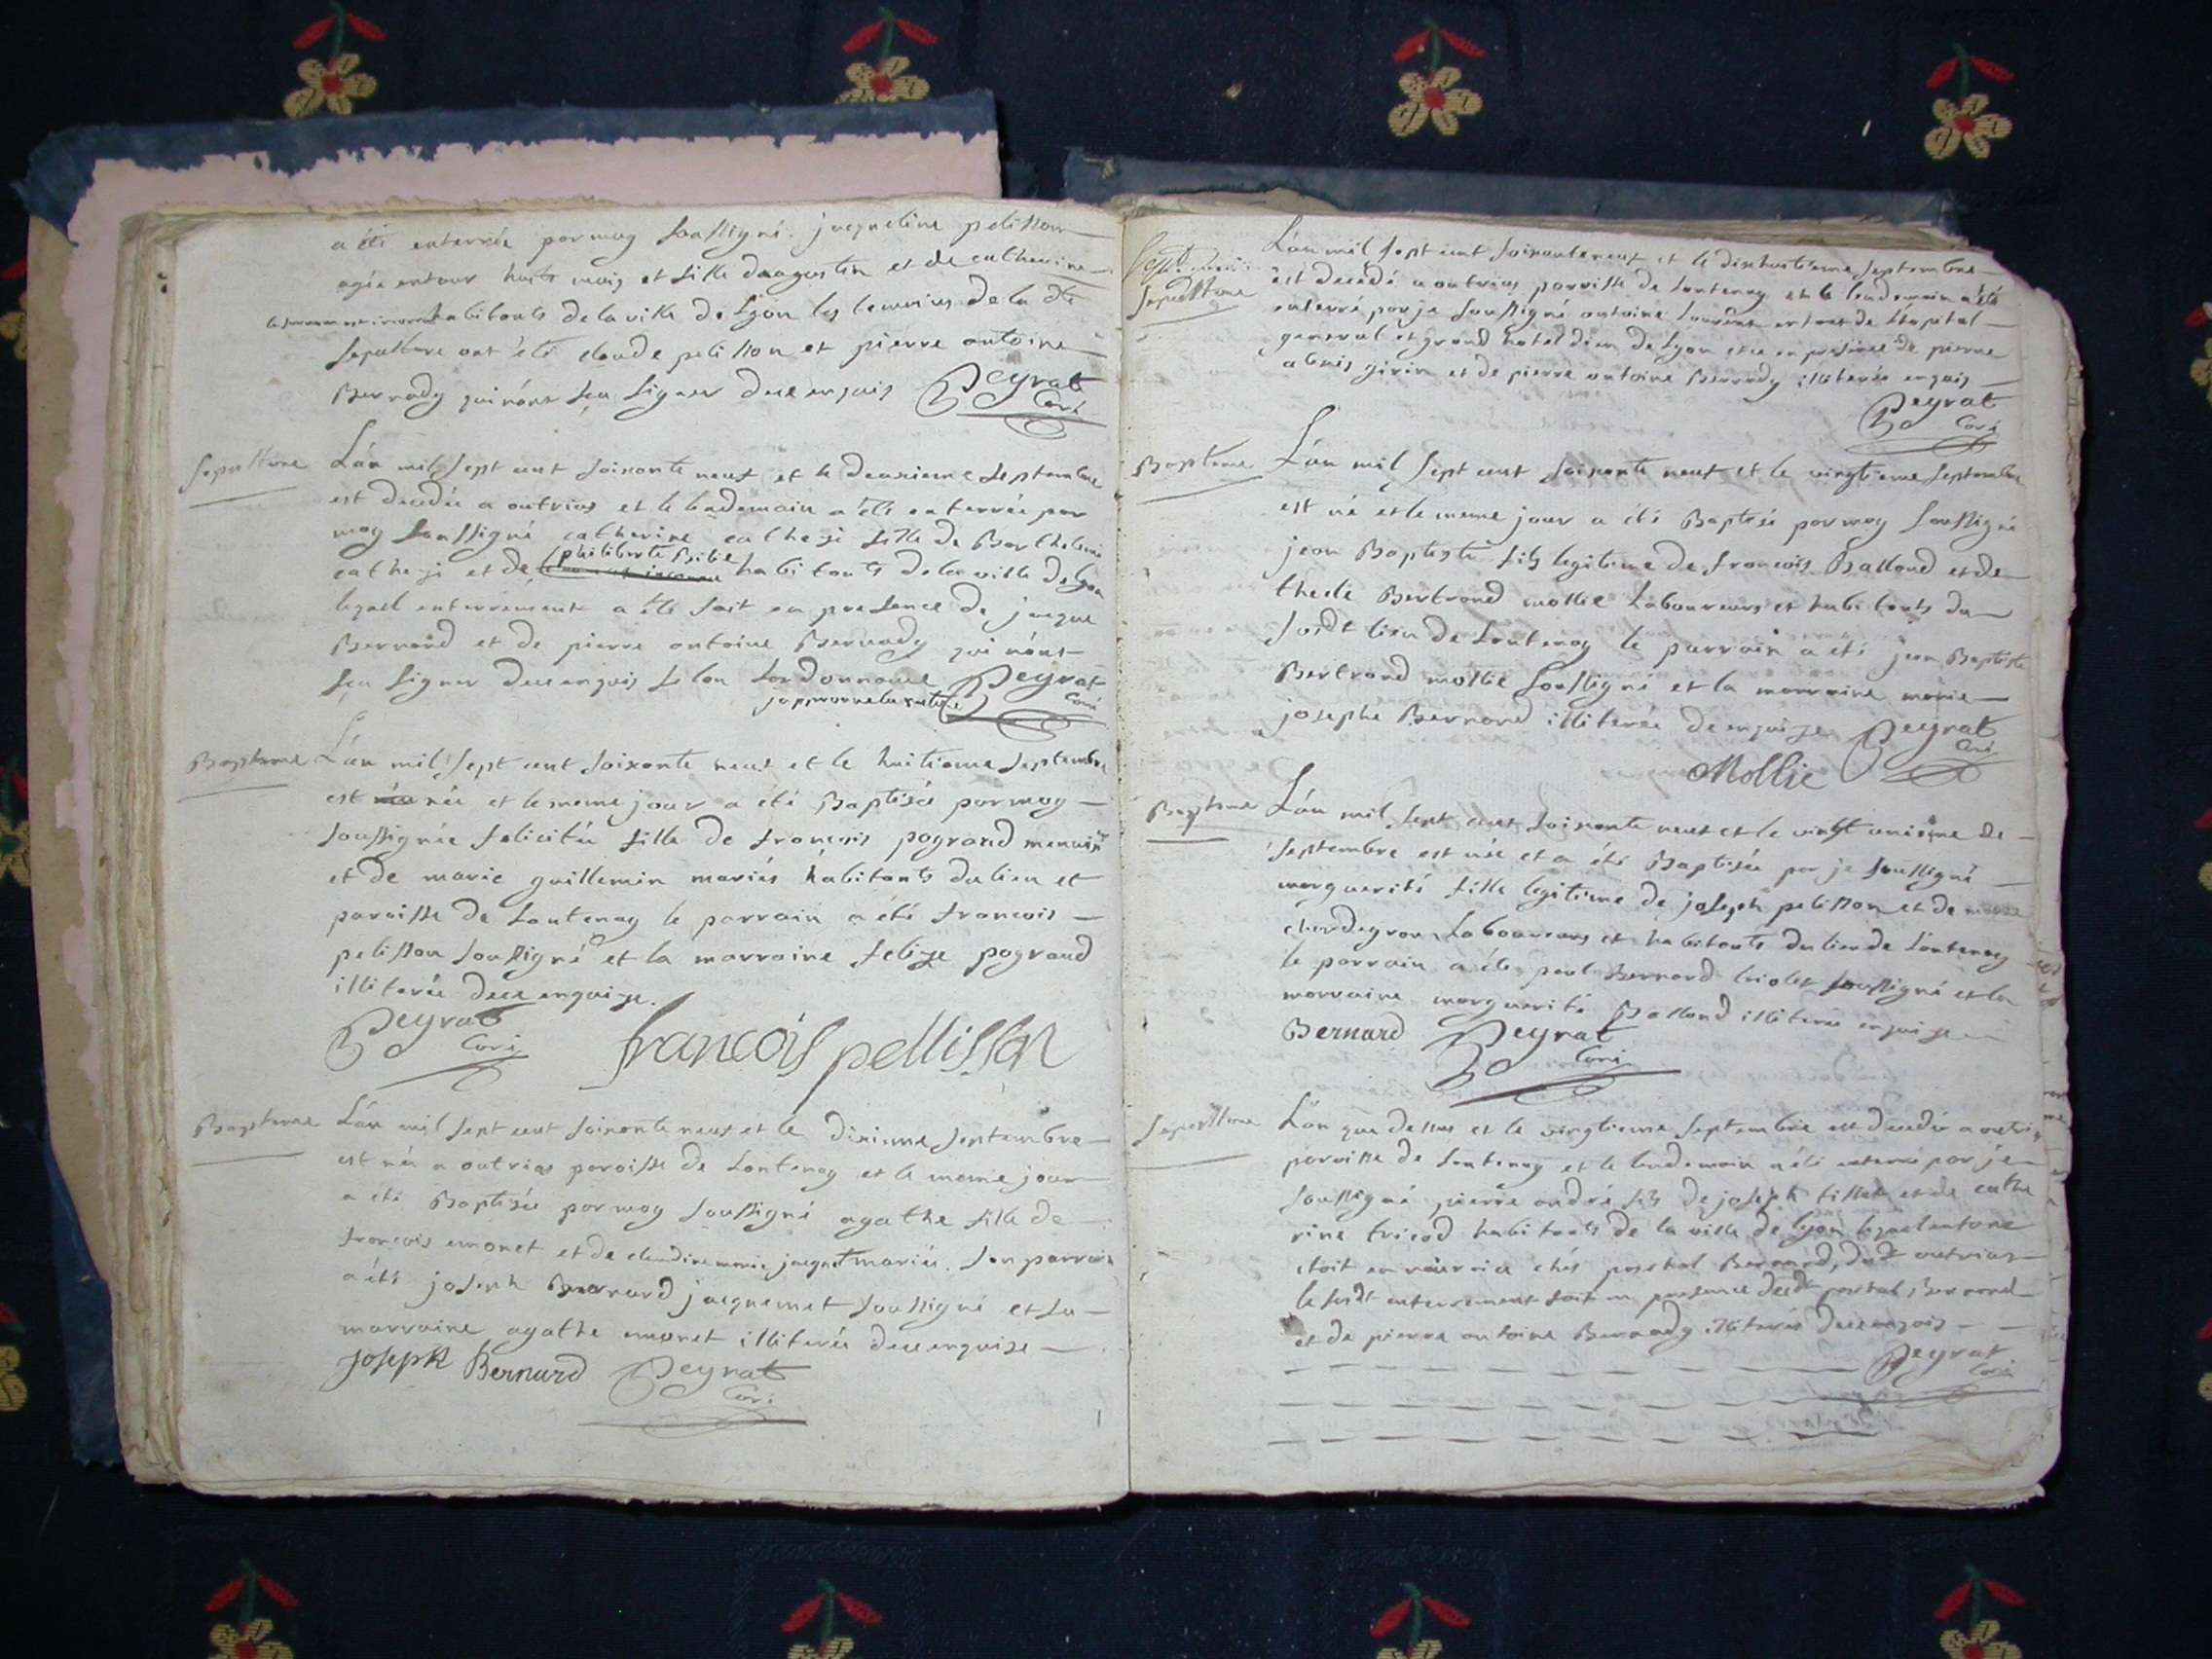 a été enterrée par moy soussigné jacqueline pelisson
agée entour huits mois et fille daugustin et de catherine
habitants de la ville de Lyon les temoins de la dte
sepulture ont été claude pelisson et pierre antoine
Bernady qui n'ont sçu signer
Peyrat
Curé
sepulture
L'an mil sept cent soixante neuf et le deuxieme septembre
est decedée a outrias et le lendemain a été enterrée par
moy soussigné catherine fille de Barthelemi
et de philiberte habitants de la ville de lyon
lequel enterrement a été fait en presence de jacque
Bernard et de pierre antoine Bernady qui n'ont
sçu signer selon L'ordonnance Peyrat
Curé
Bapteme
L'an mil sept cent soixante neuf et le huitieme septembre
est née et le meme jour a été Baptisée par moy
soussignée felicitée fille de francois pograud
et de marie guillemin mariés habitants du lieu et
paroisse de Lontenay le parrain a été francois
pelisson soussigné et la marraine pograud
illiterée
Peyrat
Curé
francois pellisson
Bapteme
L'an mil sept cent soixante neuf et le dixieme septembre
est née a outrias paroisse de Lontenay et le meme jour
a été Baptisée par moy soussigné agathe fille de
francois emonet et de claudine marie mariés. son parrain
a été joseph Bernard jacquemet soussigné et sa
marraine agathe emonet illiterée
joseph Bernard Peyrat
Curé
sepulture
L'an mil sept cent soixante neuf et le dixhuitieme septembre
est decedé a outrias parroisse de Lontenay et le lendemain a été
enterré par je soussigné antoine Laurent enfant de L'hopital
general et grand hotel dieu de Lyon et ce en presence de pierre
girin et de pierre antoine Bernady illiterés
Peyrat
Curé
Bapteme
L'an mil sept cent soixante neuf et le vingtieme septembre
est né et le meme jour a été Baptisé par moy soussigné
jean Baptiste fils legitime de francois Balland et de
Bertrand mollie Laboureurs et habitants du
susdt lieu de Lontenay le parrain a été jean Baptiste
Bertrand mollie soussigné et la marraine marie
josephe Bernard illiterée Peyrat
Curé
Mollie
Bapteme
L'an mil sept cent soixante neuf et le vingt unieme de
septembre est née et a été Baptisée par je soussigné
marguerite fille legitime de joseph pelisson et de
Laboureurs et habitants du lieu de Lontenay
le parrain a été paul Bernard soussigné et la
marraine marguerite Balland illiterée
Bernard Peyrat
Curé
sepulture
L'an que dessus et le vingtieme septembre est decedé a
parroisse de Lontenay et le lendemain a été enterré par je
soussigné pierre andré fils de joseph et de cathe
rine habitants de la ville de lyon
etoit en nourrice chés Bernard, dudt outrias
le susdt enterrement fait en presence dudt Bernard
et de pierre antoine Bernady illiterés
Peyrat
Curé